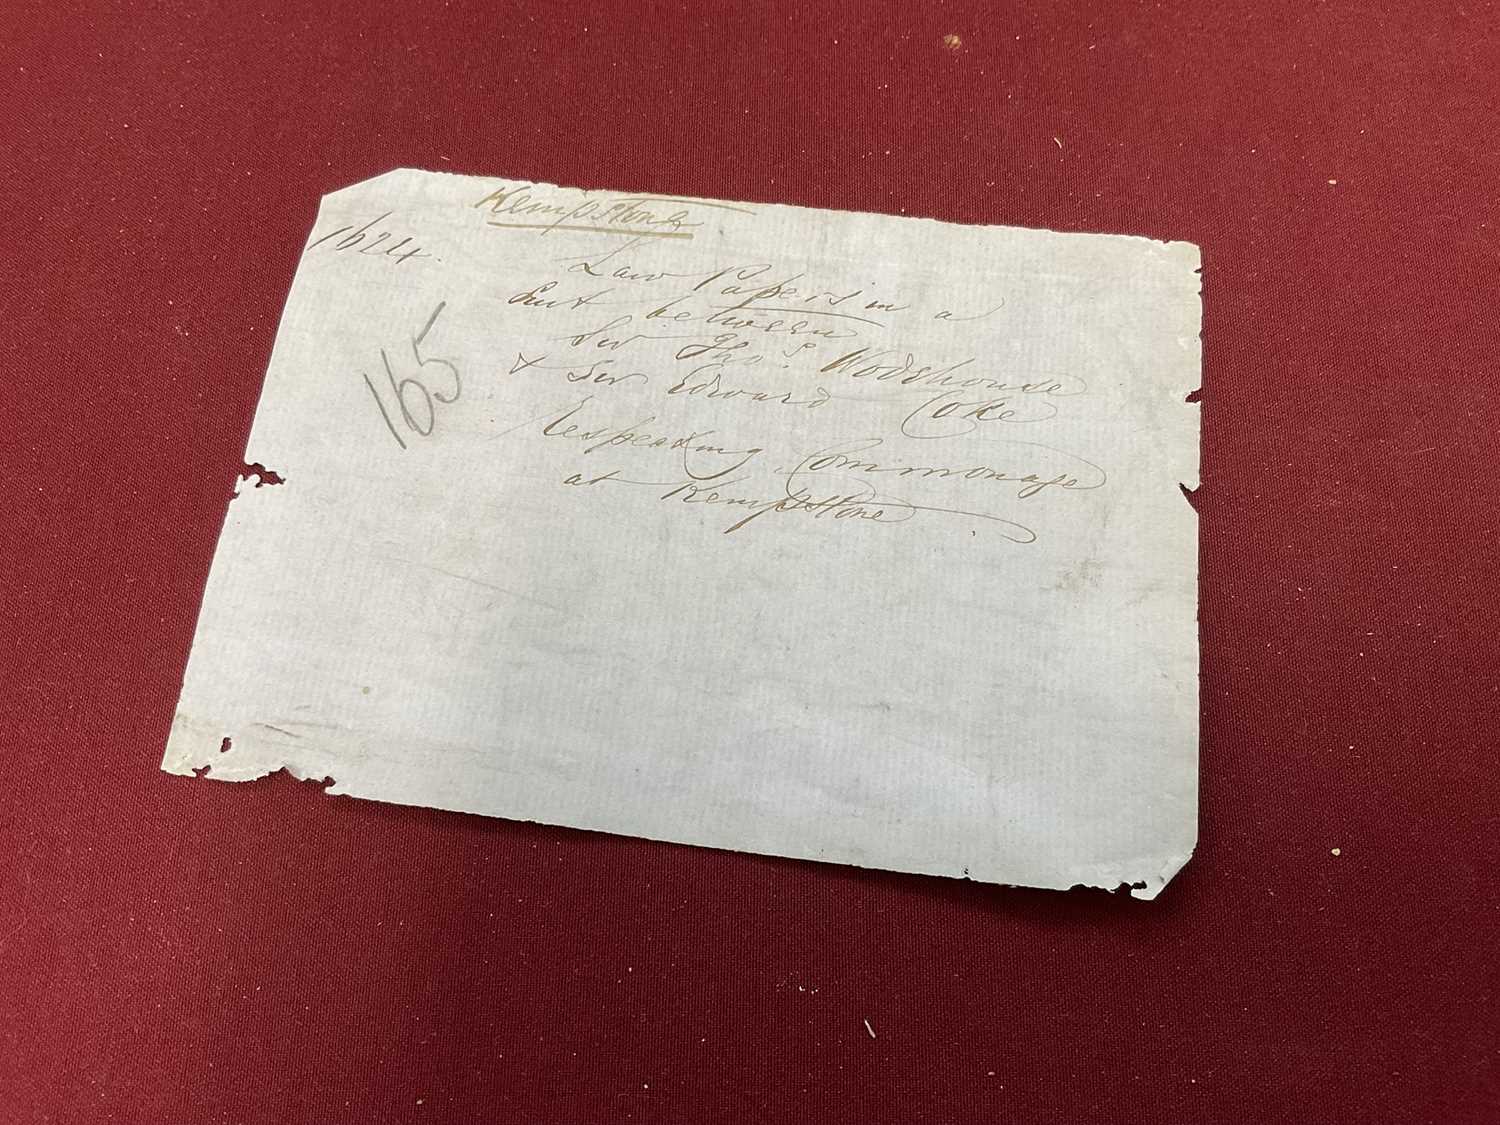 Kempstone
1624.
Law Papers in a
Suit between
Sir Thos. Wodehouse
& Sir Edward Coke
165
Respecting Commonage
at Kempstone